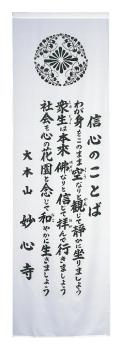 信心のことば
わが身をこのまま空なりと観じて静かに坐りましょう
衆生は本来佛なりと信じて拝んで行きましょう
社会を心の花園と念じて和やかに生きましょう
大本山 妙心寺